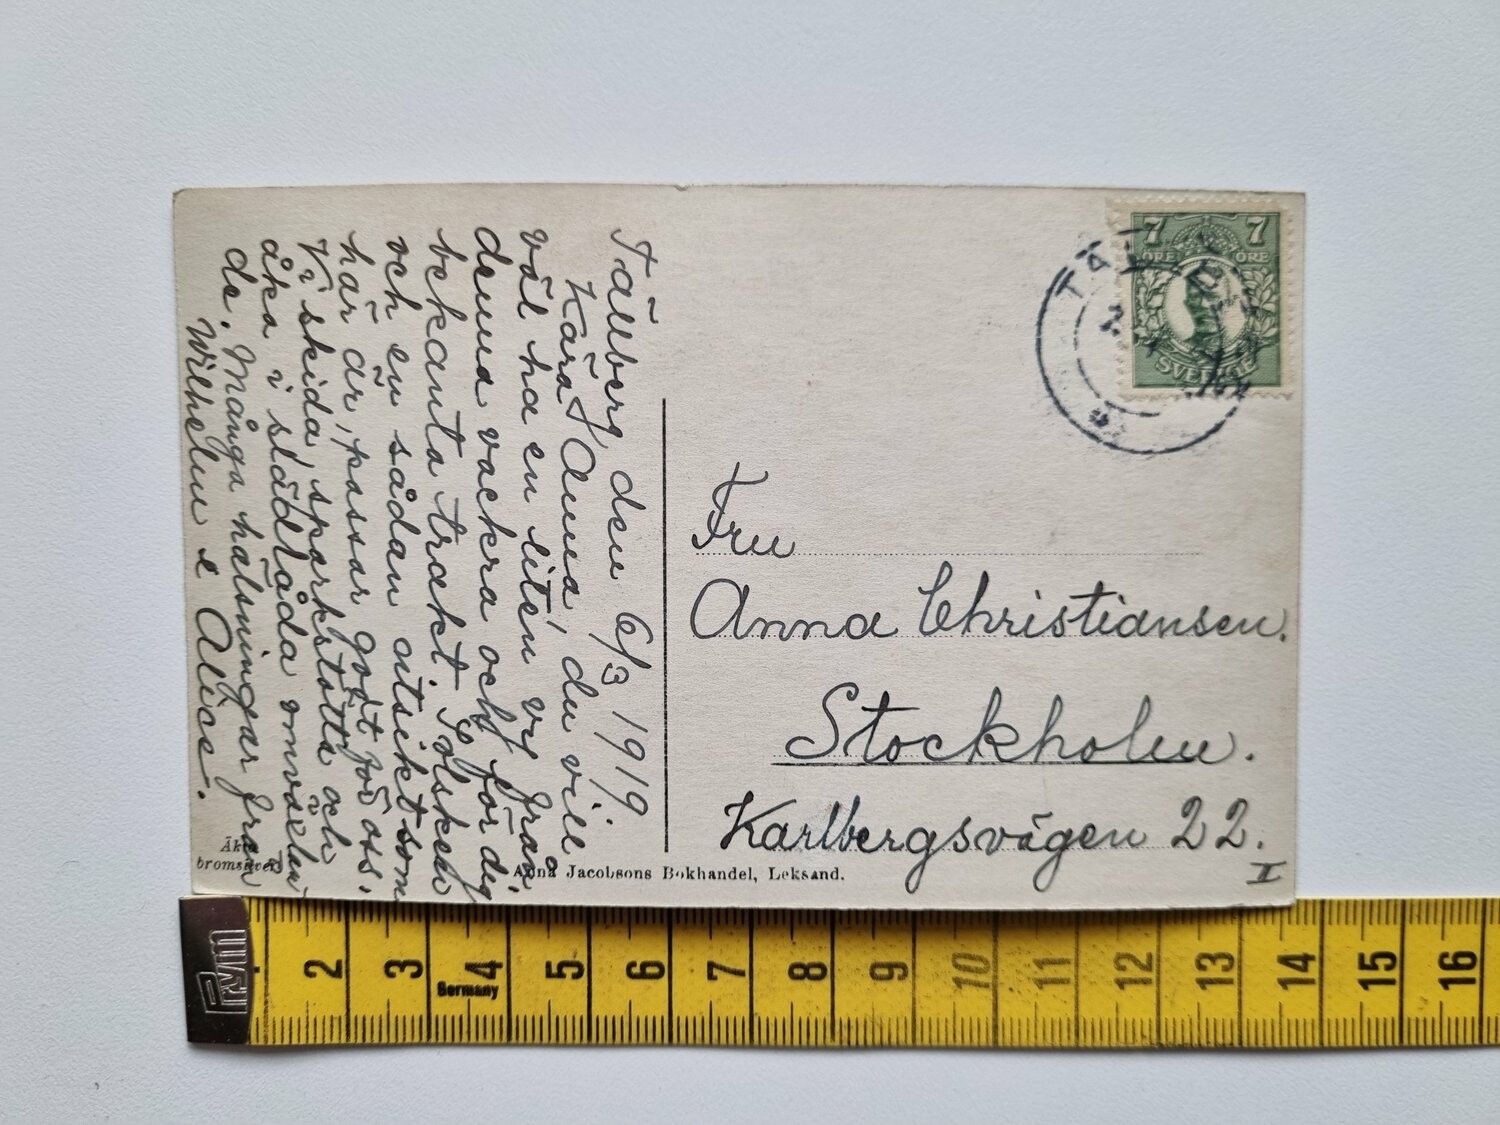 Tällberg, den 6/3 1919.
Kära Anna, du ville
väl ha en liten vy från
denna vackra och för dig
bekanta trakt. Solsken
och en sådan utsikt som
här är, passar godt för oss.
Vi skida, sparkstötta och
åka i slädlåda omväxlan-
de. Många hälsningar från
Wilhelm & Alice.
7 7
ÖRE ÖRE
SVERIGE
Fru
Anna Christiansen.
Stockholm.
Karlbergsvägen 22.
II
Äkta
bromsilver
Anna Jacobsons Bokhandel, Leksand.
Prym
2 3 4 5 6 7 8 9 10 11 12 13 14 15 16
Germany